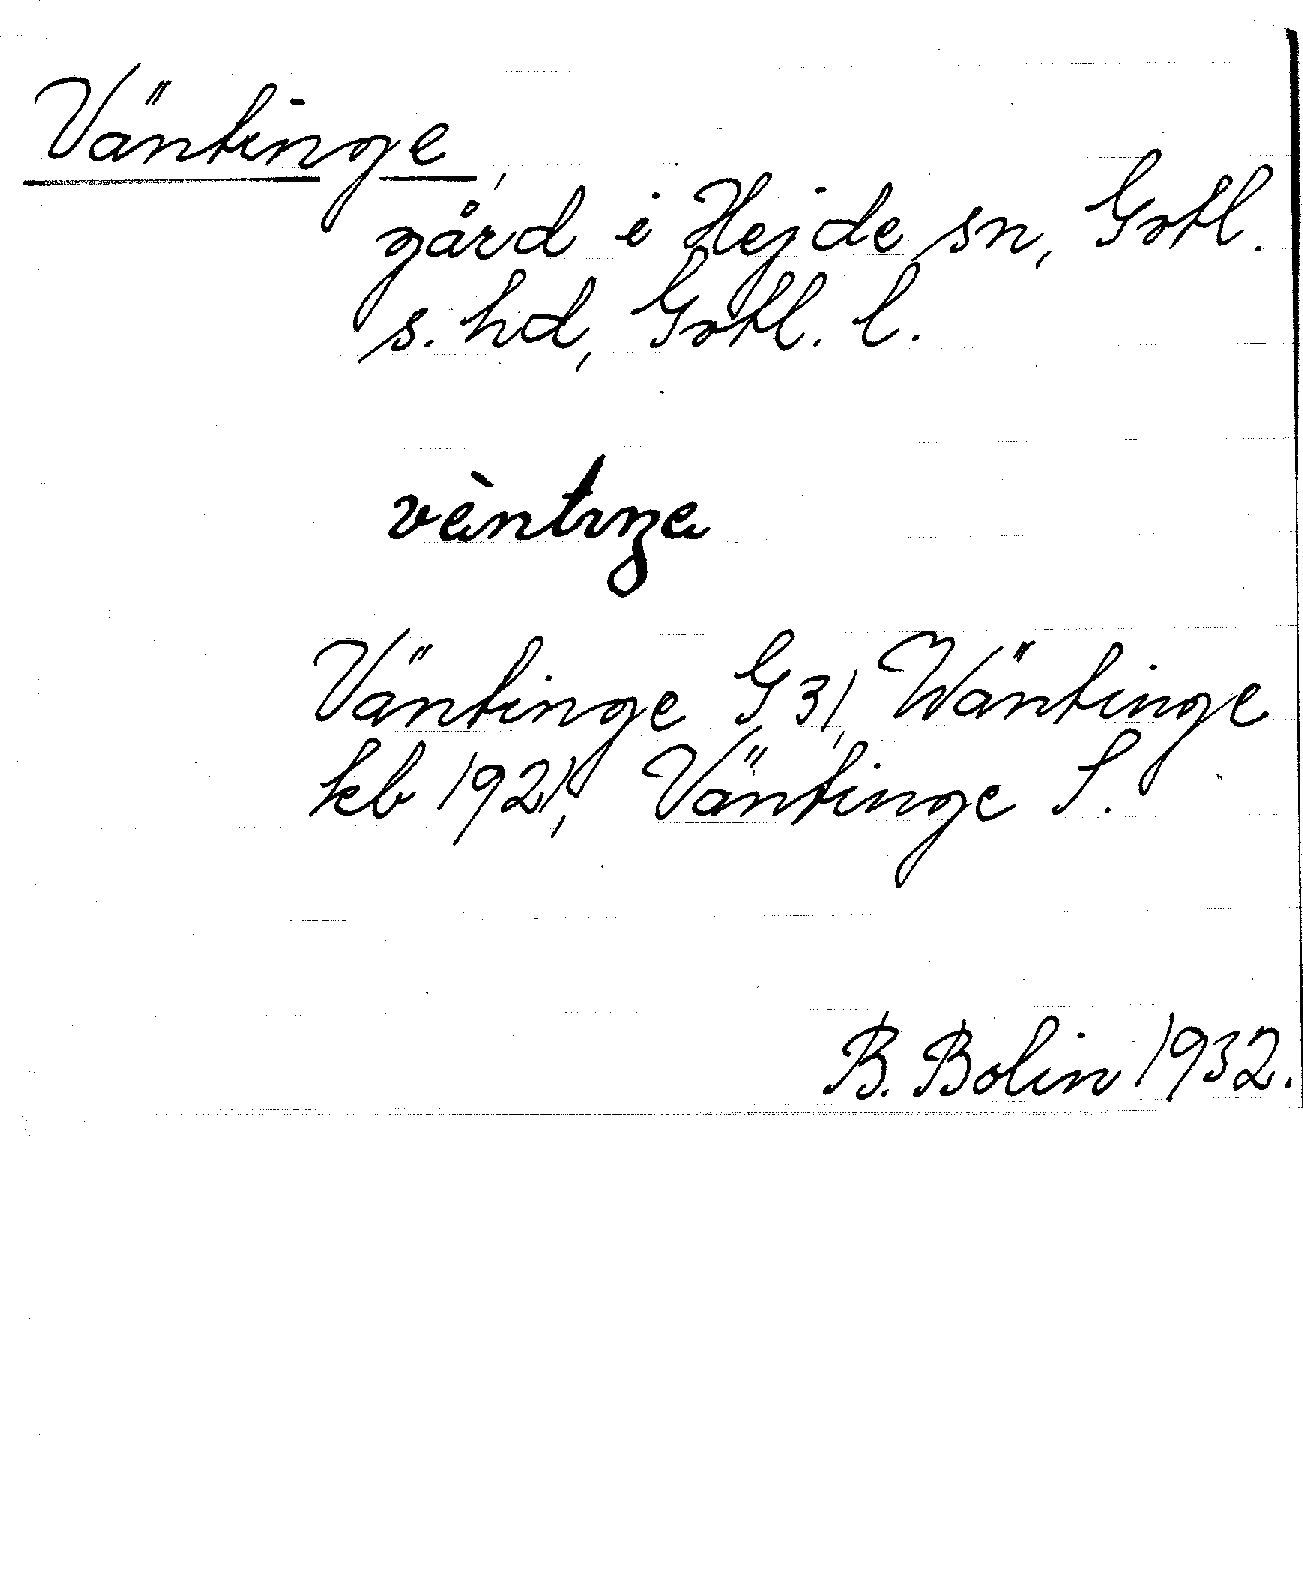 Väntinge,
gård i Hejde sn, Gotl.
s. hd, Gotl. l.
vèntıŋe
Väntinge G 31, Wäntinge
kb 1921, Väntinge S.
B. Bolin 1932.